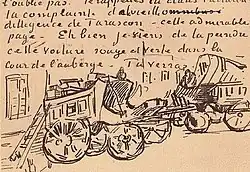 l'oublie pas.
la complainte de la vieille
diligence de Tarascon - cette admirable
page - Eh bien je viens de la peindre
cette voiture rouge et verte dans la
cour de l'auberge - Tu verras